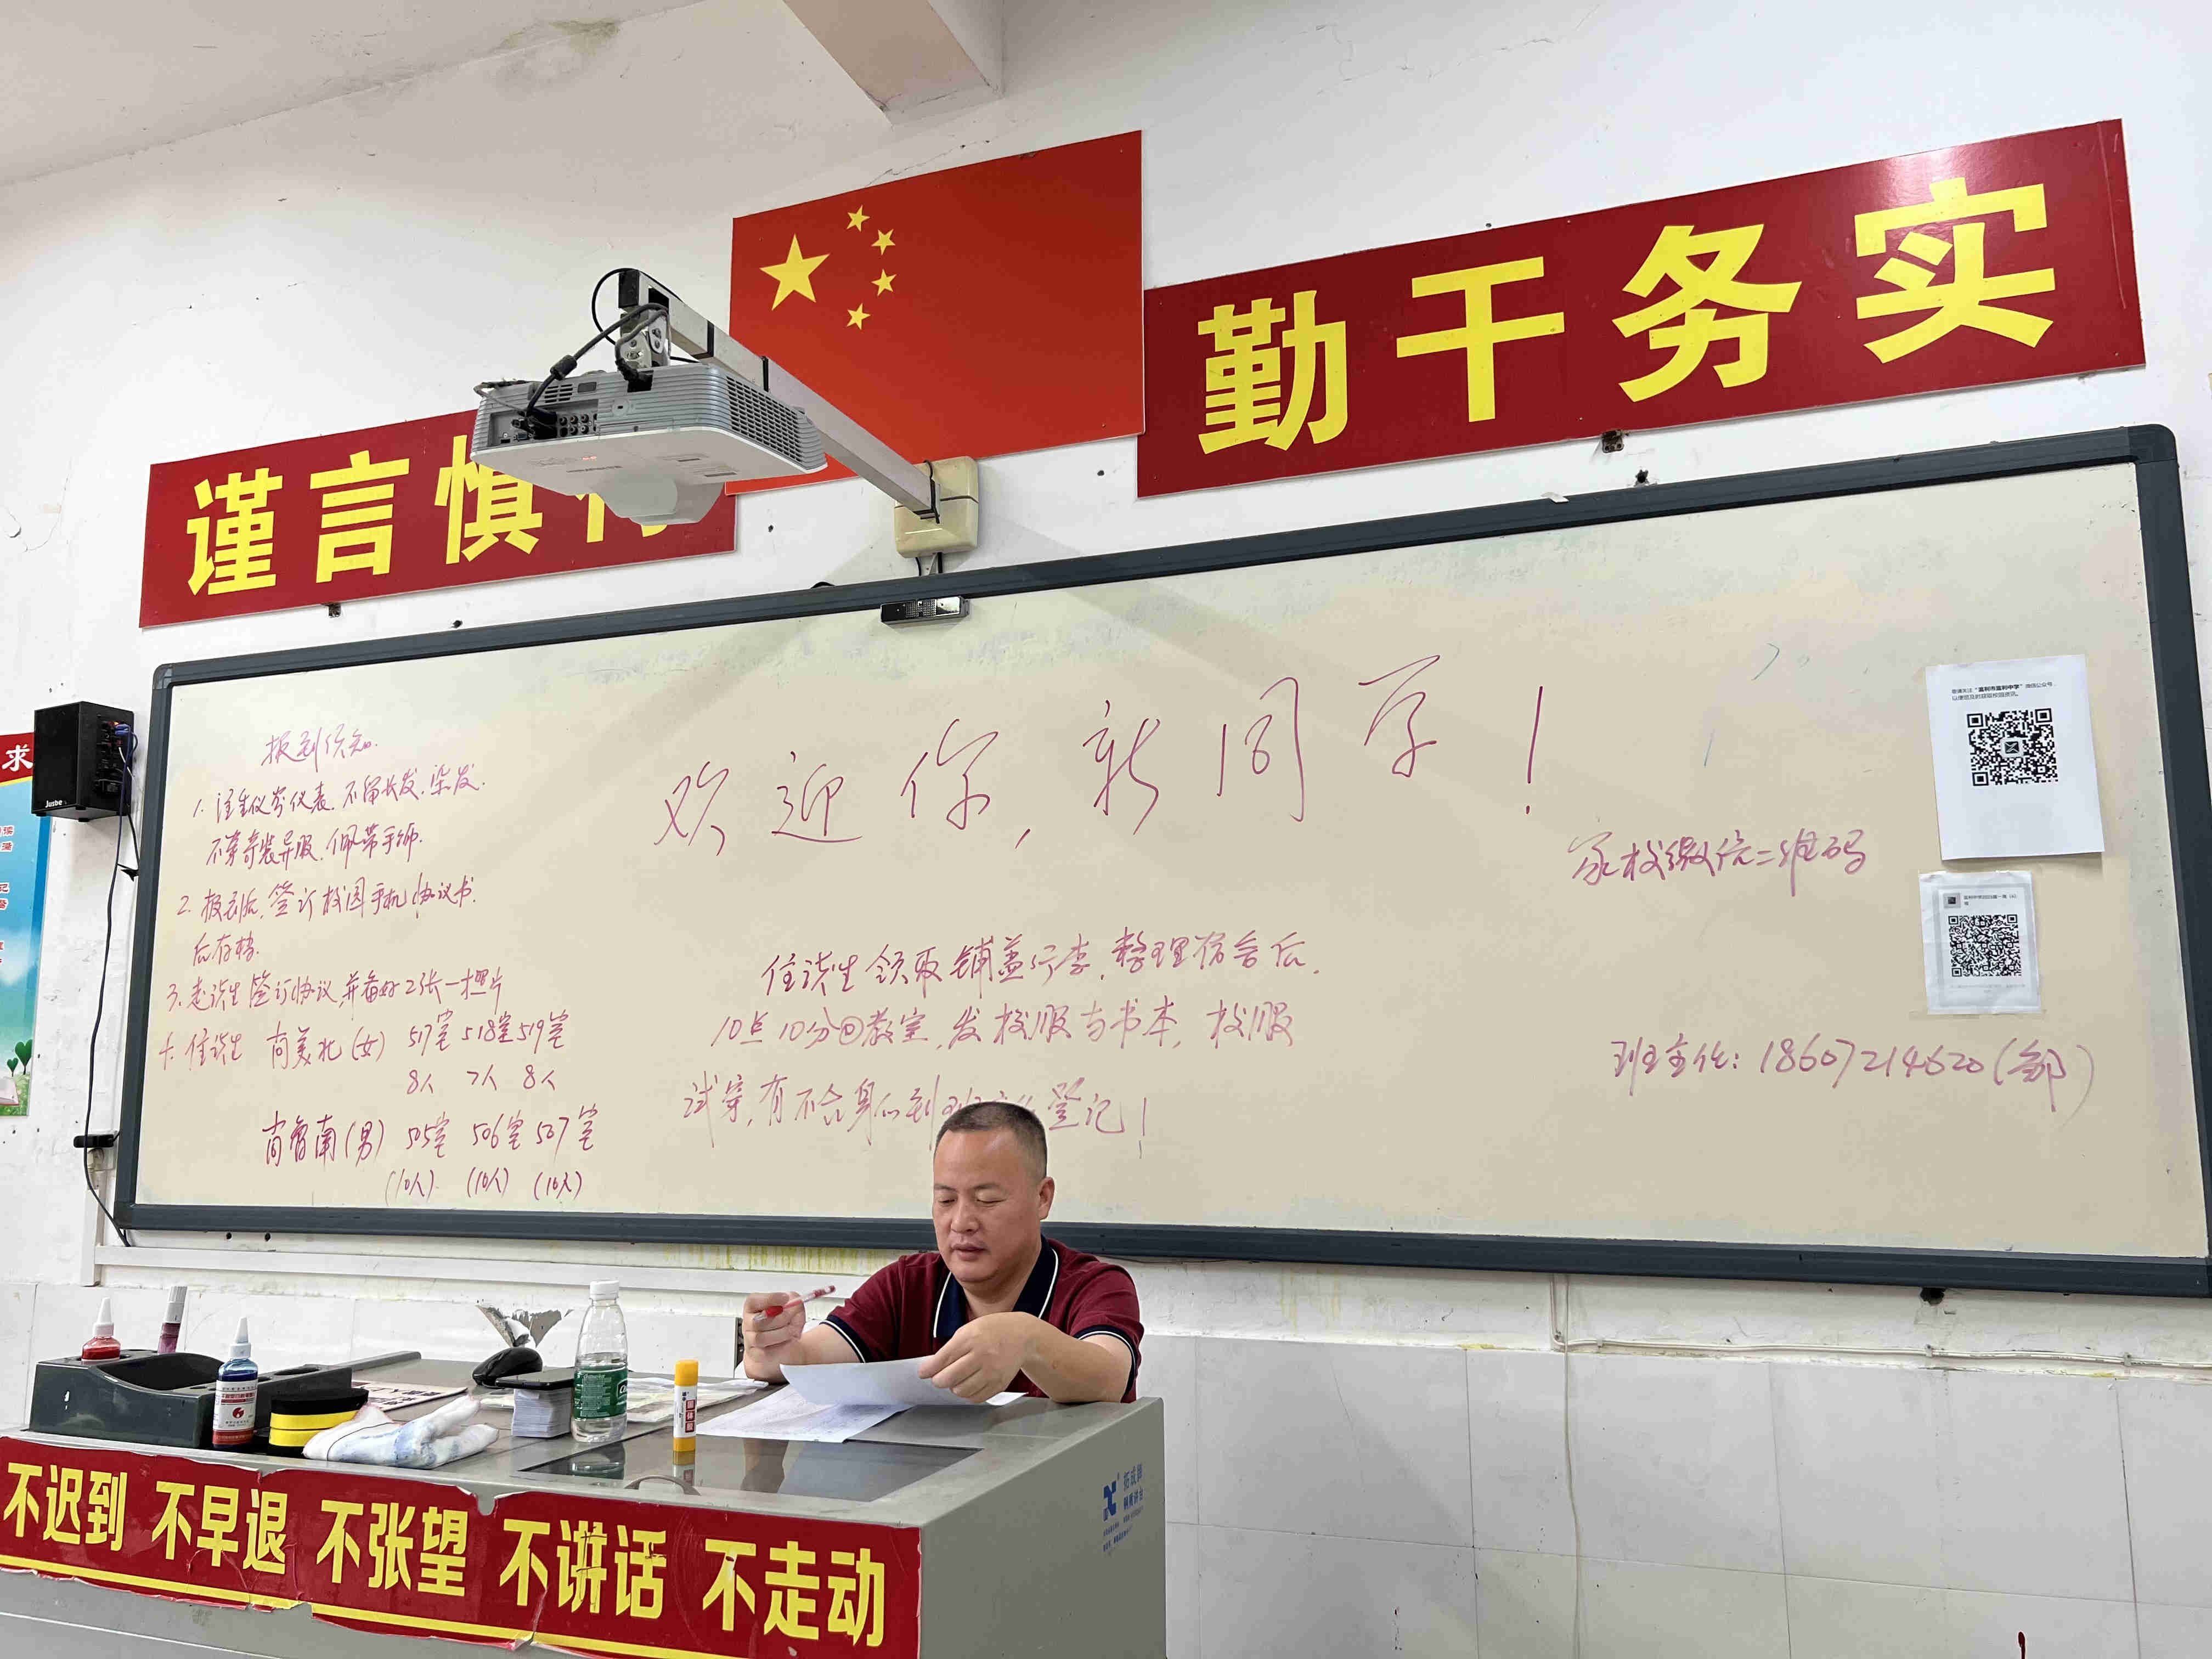 谨言慎行
勤干务实
求
Jusbe
报到须知
1. 注重仪容仪表. 不留长发. 染发.
不穿奇装异服. 佩带手饰.
2. 报到后, 签订校园手机协议书.
后存档.
3. 走读生签订协议并备好2张一寸照片
住读生 尚美北(女) 517室 518室 519室
8人 7人 8人
尚育南(男) 505室 506室 507室
(10人) (10人) (10人)
欢迎你, 新同学!
住读生领取铺盖行李, 整理宿舍后.
10点10分回教室, 发校服与书本, 校服
试穿, 有不合身的到班主任登记!
家校微信二维码
班主任: 18607214620 (邹)
不迟到 不早退 不张望 不讲话 不走动